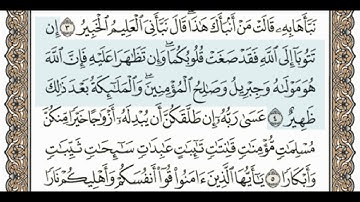 نَبَّأَهَا بِهِۦ قَالَتْ مَنْ أَنۢبَأَكَ هَٰذَا قَالَ نَبَّأَنِىَ ٱلْعَلِيمُ ٱلْخَبِيرُ ٣ إِن
تَتُوبَآ إِلَى ٱللَّهِ فَقَدْ صَغَتْ قُلُوبُكُمَا وَإِن تَظَٰهَرَا عَلَيْهِ فَإِنَّ ٱللَّهَ
هُوَ مَوْلَىٰهُ وَجِبْرِيلُ وَصَٰلِحُ ٱلْمُؤْمِنِينَ وَٱلْمَلَٰٓئِكَةُ بَعْدَ ذَٰلِكَ
ظَهِيرٌ ٤ عَسَىٰ رَبُّهُۥٓ إِن طَلَّقَكُنَّ أَن يُبْدِلَهُۥٓ أَزْوَٰجًا خَيْرًا مِّنكُنَّ
مُسْلِمَٰتٍ مُّؤْمِنَٰتٍ قَٰنِتَٰتٍ تَٰٓئِبَٰتٍ عَٰبِدَٰتٍ سَٰٓئِحَٰتٍ ثَيِّبَٰتٍ
وَأَبْكَارًا ٥ يَٰٓأَيُّهَا ٱلَّذِينَ ءَامَنُوا۟ قُوٓا۟ أَنفُسَكُمْ وَأَهْلِيكُمْ نَارًا